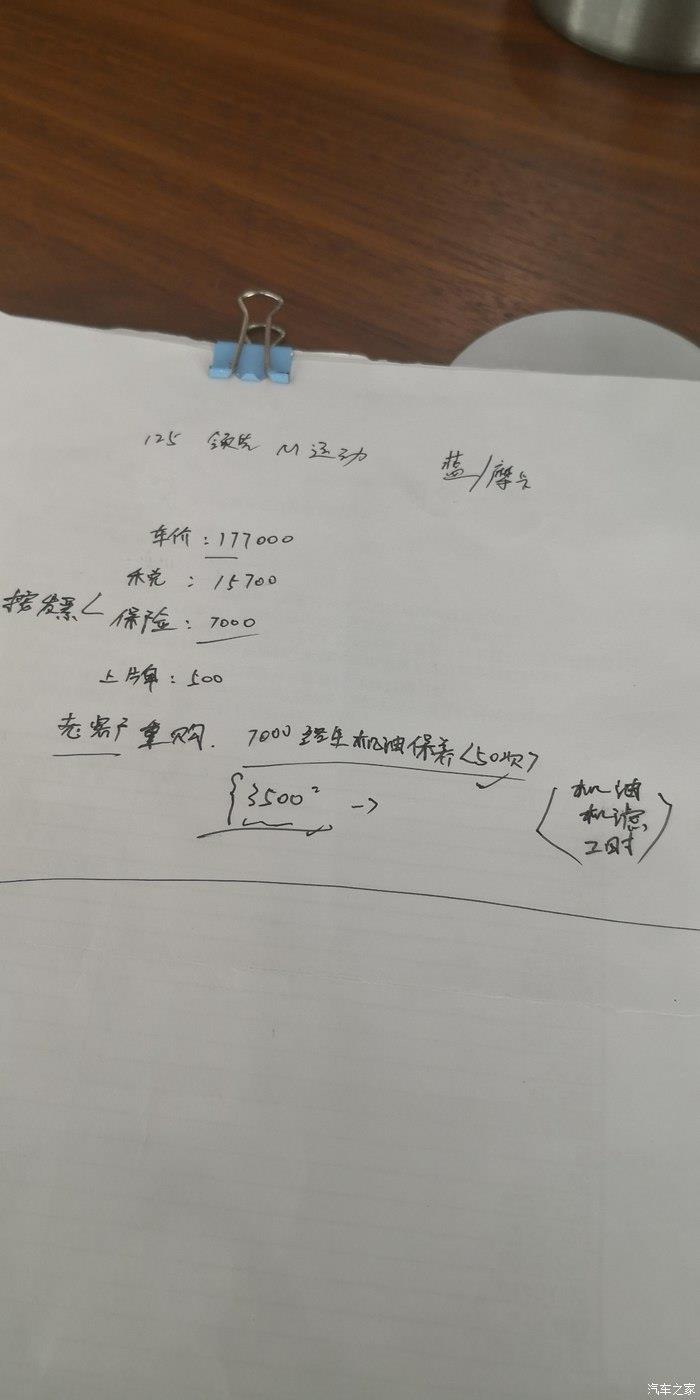 125 领先 M运动 蓝/摩卡
车价：177000
税：15700
按发票< 保险：7000
上牌：500
老客户重购. 7000 终生机油保养<50次>
{3500
机油
机滤
工时
汽车之家